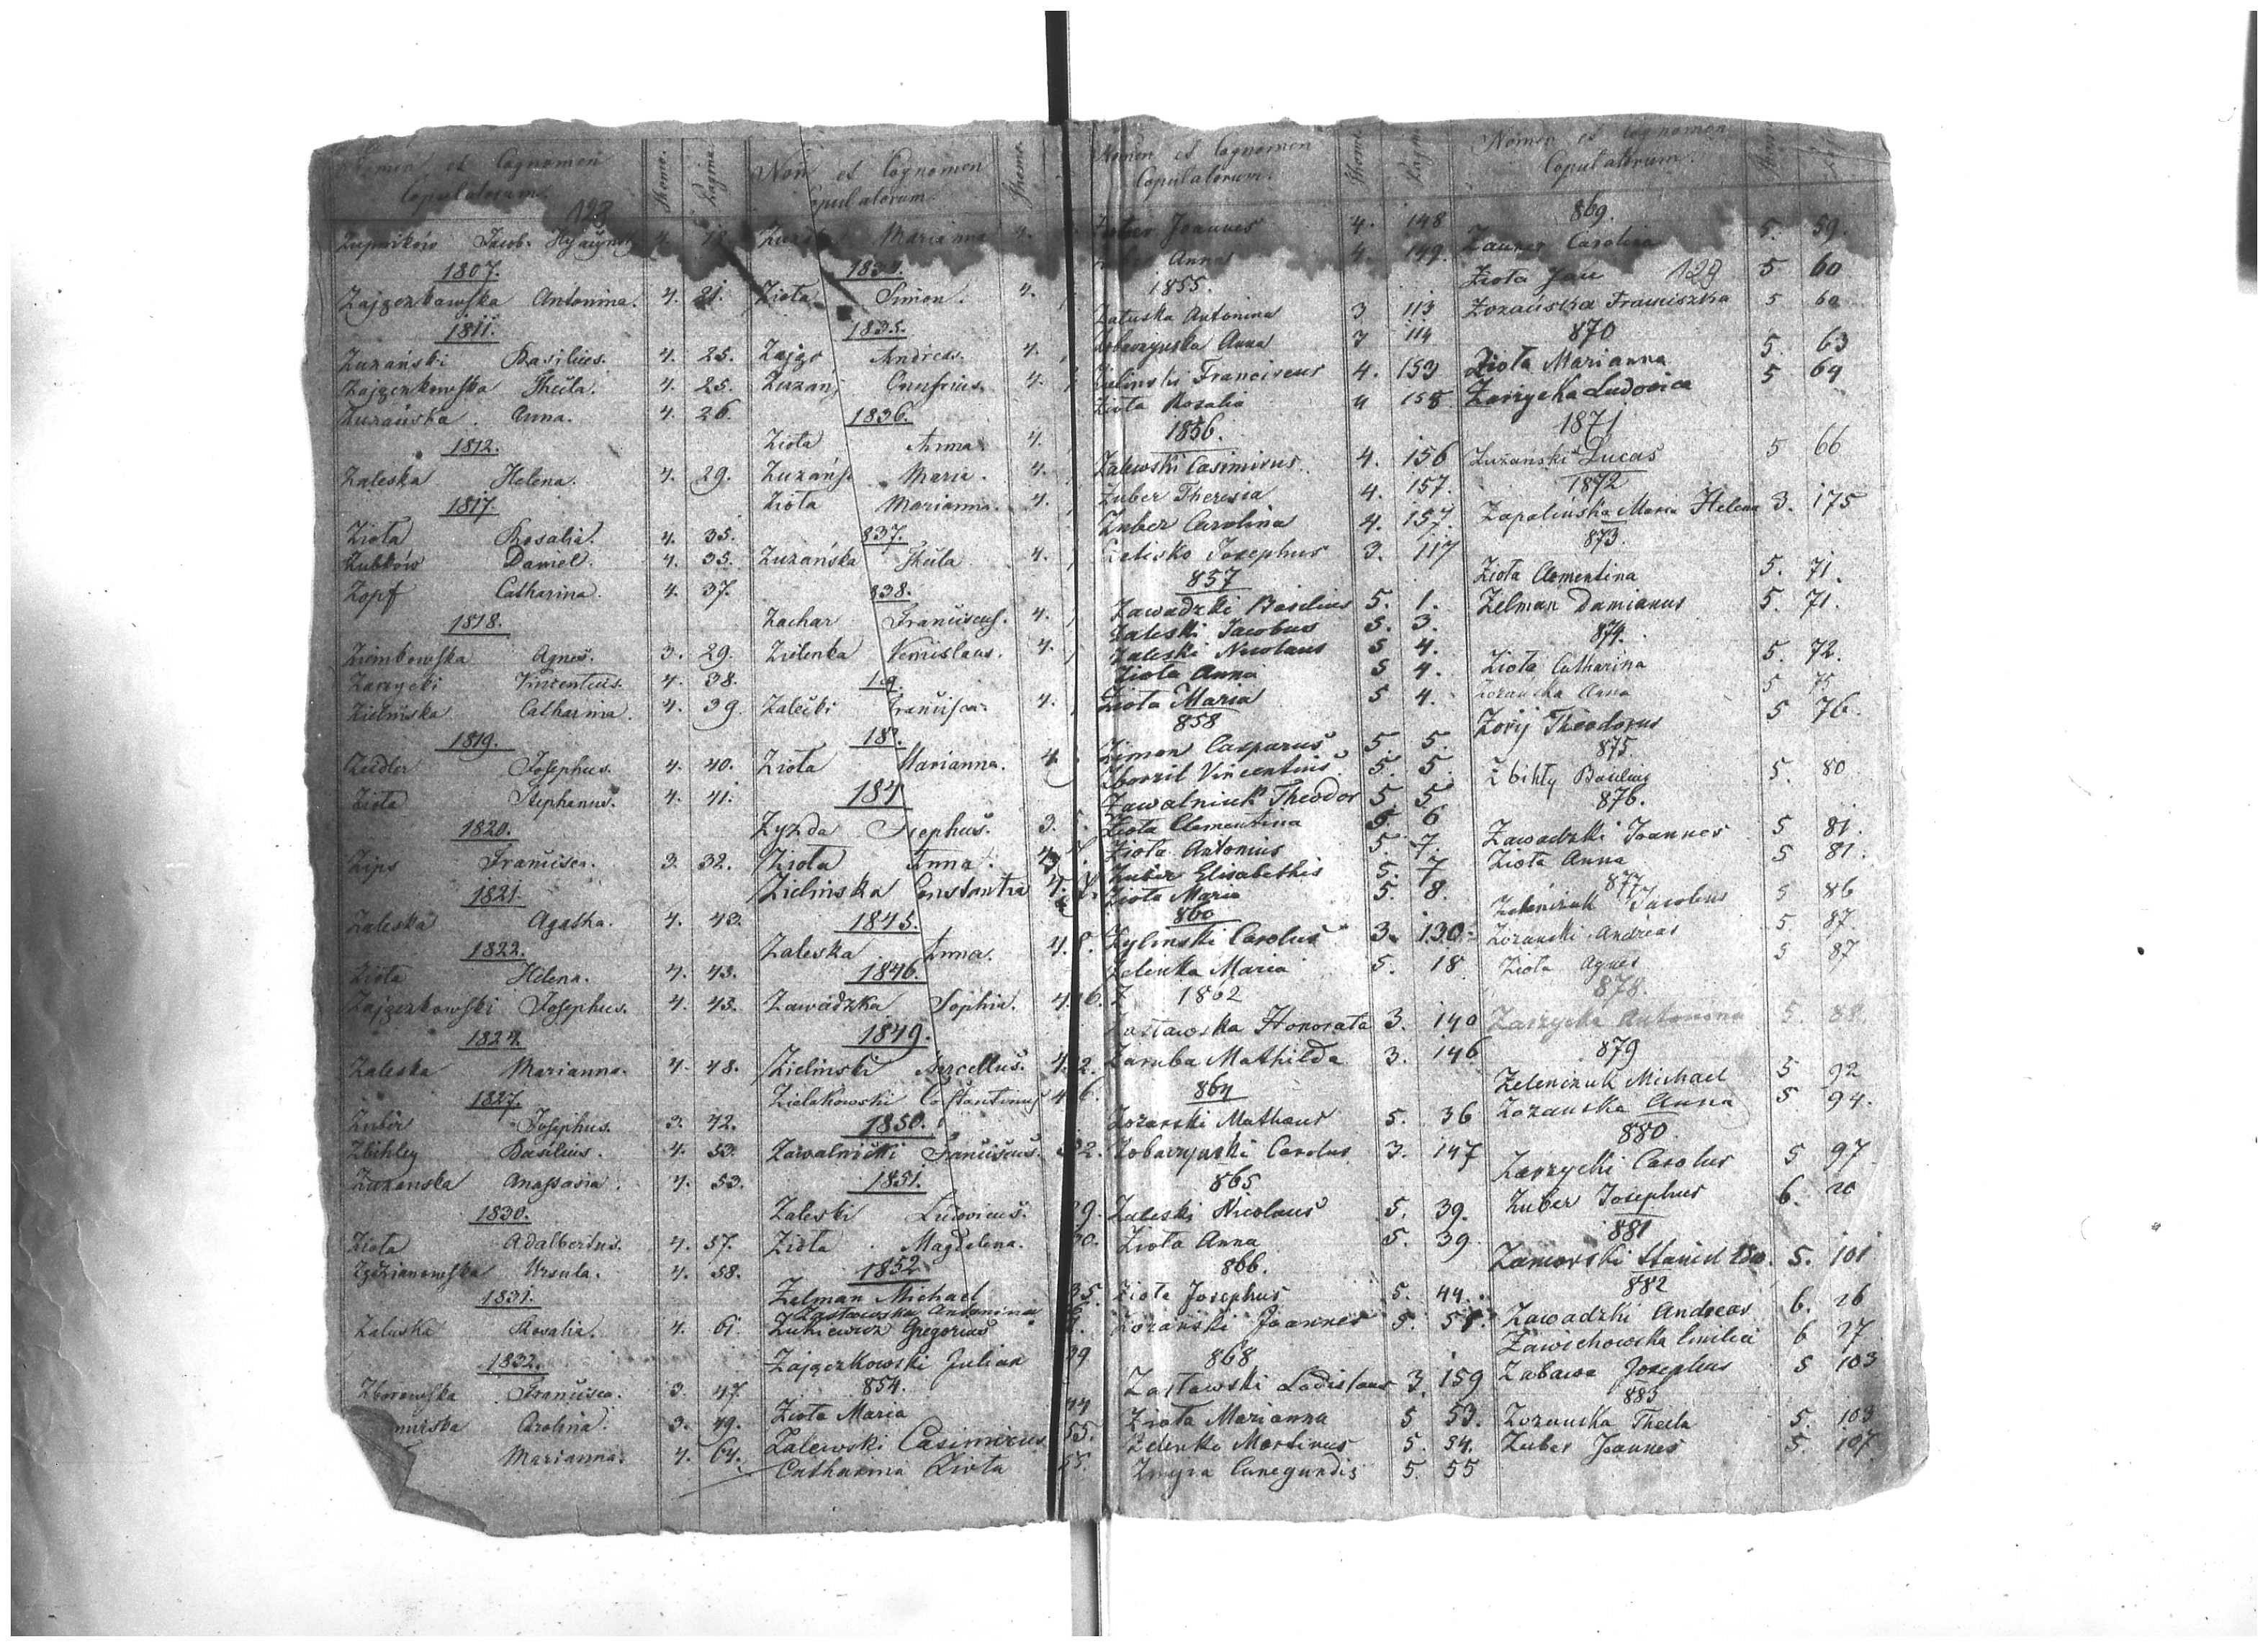 Nomen et Cognomen
Copulatorum.
Thomo.
Pagina
128
Zupników Jacob. 4.
1807.
Zajączkowska Antonina. 4. 21.
1811.
Zuzański Basilius. 4. 25.
Zajączkowska Thecla. 4. 25.
Zuzańska Anna. 4. 26.
1812.
Zaleska Helena. 4. 29.
1817.
Ziota Rosalia. 4. 35.
Zubków Daniel. 4. 35.
Zopf Catharina. 4. 37.
1818.
Ziembowska Agnes. 3. 29.
Zarzycki Vincentius. 4. 38.
Zielińska Catharina. 4. 39.
1819.
Zeidler Josephus. 4. 40.
Ziota Stephanus. 4. 41.
1820.
Zips Francisca. 3. 32.
1821.
Zaleska Agatha. 4. 43.
1822.
Ziota Helena. 4. 43.
Zajączkowski Josephus. 4. 43.
1824.
Zaleska Marianna. 4. 48.
1827.
Zuber Josephus. 3. 42.
Zbihley Basilius. 4. 53.
Zuzanska Anassasia. 4. 53.
1830.
Ziota Adalbertus. 4. 57.
Ursula. 4. 58.
1831.
Zaluska Rosalia. 4. 61.
1832.
Zborowska Francisca. 3. 47.
Carolina. 3. 49.
Marianna. 4. 64.
Nom et Cognomen
Copulatorum.
Thomo.
Marianna 4.
Ziota Simon. 4.
1835.
Zajgo Andreas. 4.
Zuzanj Onufrius. 4.
1836.
Ziota Anna 4.
Zuzańs Maria. 4.
Ziota Marianna. 4.
837.
Zuzańska Thecla 4.
838.
Zachar Franciscus. 4.
Zielenka Venceslaus. 4.
Zalecki Francisca 4.
Ziota Marianna. 4
184
Zyzda Josephus. 3.
Ziota Anna.
Zielinska Constantia 4.
1845.
Zaleska Anna. 4.
1846.
Zawadzka Sophia. 4. 6.
1849.
Zielinski Marcellus. 4. 2.
Zielakowski Costantinus 4 6.
1850.
Zawalnicki Franciscus. 32.
1851.
Zaleski Ludovicus. 29.
Ziota Magdalena. 30.
1852
Zelman Michael 35.
Zastawska Antonina
Zukiewicz Gregorius
Zajączkowski Julian 39
854.
Ziota Maria 44
Zalewski Casimirus 55.
Catharina Ziota 55.
Nomen et Cognomen
Copulatorum.
Thomo
Pagina
Zuber Joannes 4. 148
Anna 4. 149.
1855.
Zatuska Antonina 3 113
Zobarzynska Anna 3 114
Zielinski Franciscus 4. 153
Ziota Rosalia 4 155
1856.
Zalewski Casimirus 4. 156
Zuber Theresia 4. 157.
Zuber Carolina 4. 157.
Zelisko Josephus 3. 117
857
Zawadzki Basilius 5. 1.
Zaleski Jacobus 5. 3.
Zaleski Nicolaus 5 4.
Ziota Anna 5 4.
Ziota Maria 5 4.
858
Zimon Casparus 5. 5.
Zborzil Vincentius 5. 5.
Zawalniuk Theodor 5. 5.
Ziota Clementina 5. 6
Ziota Antonius 5. 7.
Zuber Elisabethis 5. 7
Ziota Maria 5. 8.
860
Zylinski Carolus 3. 130.
Zelenka Maria 5. 18
Z 1862
Zastawska Honorata 3. 140
Zaruba Mathilda 3. 146
864
Zozanski Mathaus 5. 36
Zobarzynski Carolus 3. 147
865
Zaleski Nicolaus 5. 39.
Ziota Anna 5. 39
866.
Ziota Josephus 5. 44.
Zozanski Joannes 5. 51.
868
Zastawski Ladislaus 3. 159
Ziota Marianna 5 53.
Zelenka Martinus 5. 54.
Zmyra Cunegundis 5. 55
Nomen et Cognomen
Copulatorum.
869.
Zauner Carolina 5. 59.
Ziota Jan 129 5. 60
Zozańska Franciszka 5 60
870
Ziota Marianna 5. 63
Zarzycka Ludovica 5 64
1871
Zuzanski Lucas 5 66
1872
Zapalinska Maria Helena 3. 175
873.
Ziota Clementina 5. 71.
Zelman Damianus 5. 71.
874.
Ziota Catharina 5. 72.
Zozanska Anna 5 75
Zorij Theodorus 5 76.
875.
Zbihly Basilius 5. 80
876.
Zawadzki Joannes 5 81.
Ziota Anna 5 81.
877
Zeleniuk Jacobus 5 86
Zozanski Andreas 5 87.
Ziota Agnes 5 87
878.
Zarzycka Antonina 5. 88.
879
Zelenczuk Michael 5 92
Zozanska Anna 5 94.
880
Zarzycki Carolus 5 97
Zuber Josephus 6. 20
881
Zamorski 5. 101
882
Zawadzki Andreas 6. 26
Zawichowska Emilia 6 27
Zabawa Josephus 5 103
883
Zozanska Thecla 5. 103
Zuber Joannes 5. 107